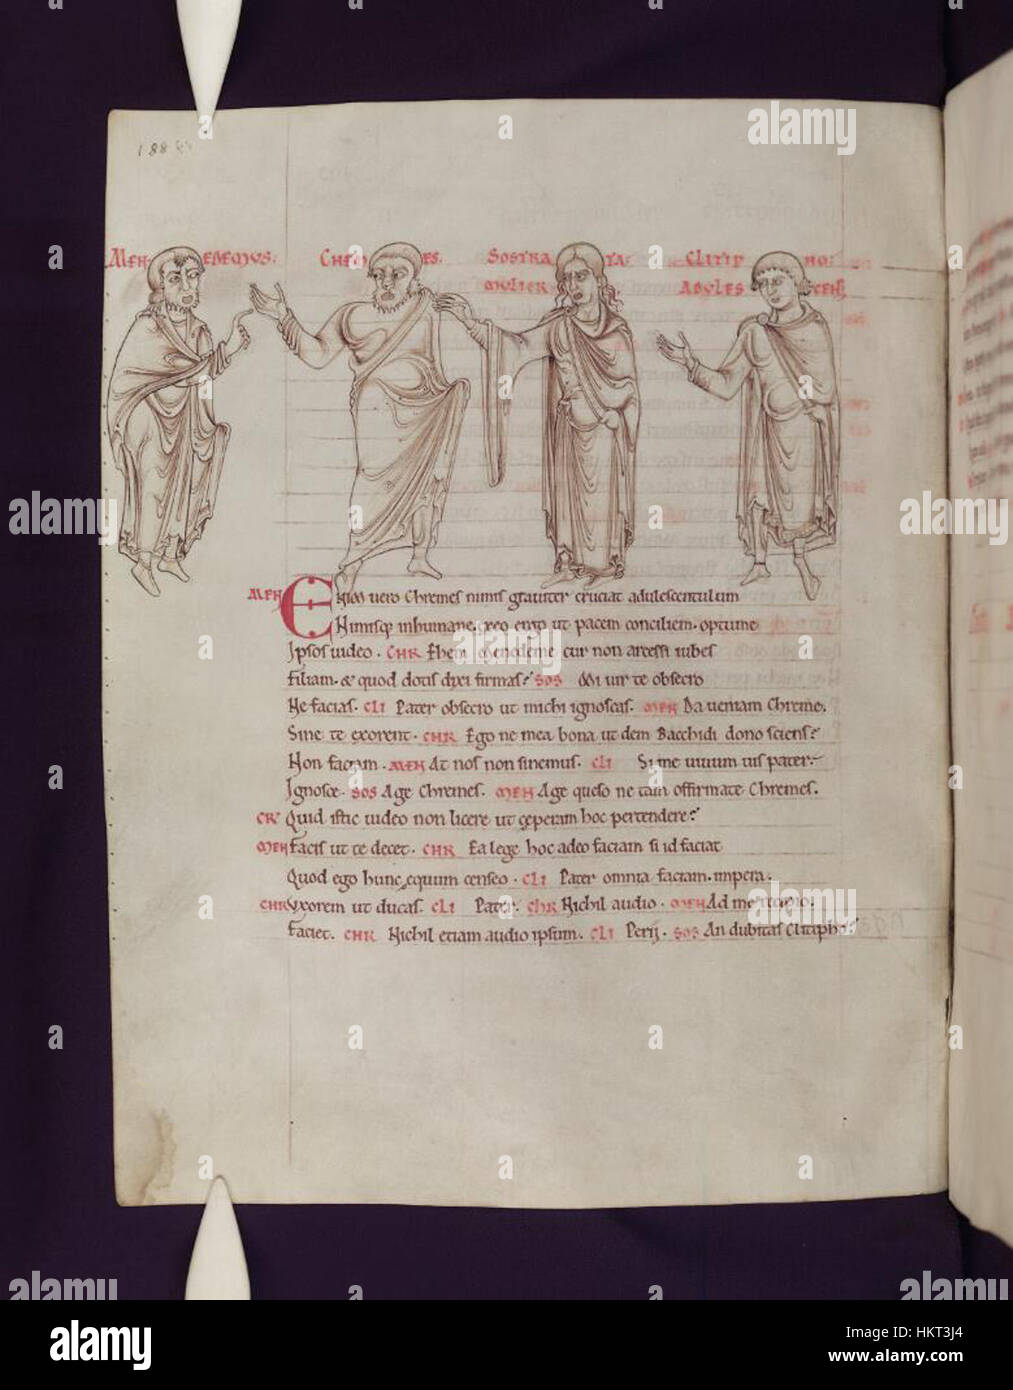 MEN EDEMUS. CHEM ES. SOSTRA TA. CLITIP HO.
MULIER ADULES CENS
MEN Enim uero Chremes nimis grauiter cruciat adulescentulum
Nimisq; inhumane. exeo ergo ut pacem conciliem. optume
Ipsos uideo. CHR Ehem Menedeme cur non arcessi iubes
Filiam. & quod dotis dixi firmas? SOS Mi uir te obsecro
Ne facias. CLI Pater obsecro ut michi ignoscas. MEN Da ueniam Chreme.
Sine te exorent. CHR Ego ne mea bona ut dem Bacchidi dono sciens?
Non faciam. MEN At nos non sinemus. CLI Si me uiuum uis pater.
Ignosce. SOS Age Chremes. MEN Age queso ne tam offirmate Chremes.
CR Quid istic uideo non licere ut ceperam hoc pertendere?
MEN Facis ut te decet. CHR Ea lege hoc adeo faciam si id faciat
Quod ego hunc equum censeo. CLI Pater omnia faciam. impera.
CHR Uxorem ut ducas. CLI Pater. CHR Nichil audio. MEN Ad me recipio.
Faciet. CHR Nichil etiam audio ipsum. CLI Perij. SOS An dubitas Clitipho?
alamy
Image ID: HKT3J4
www.alamy.com